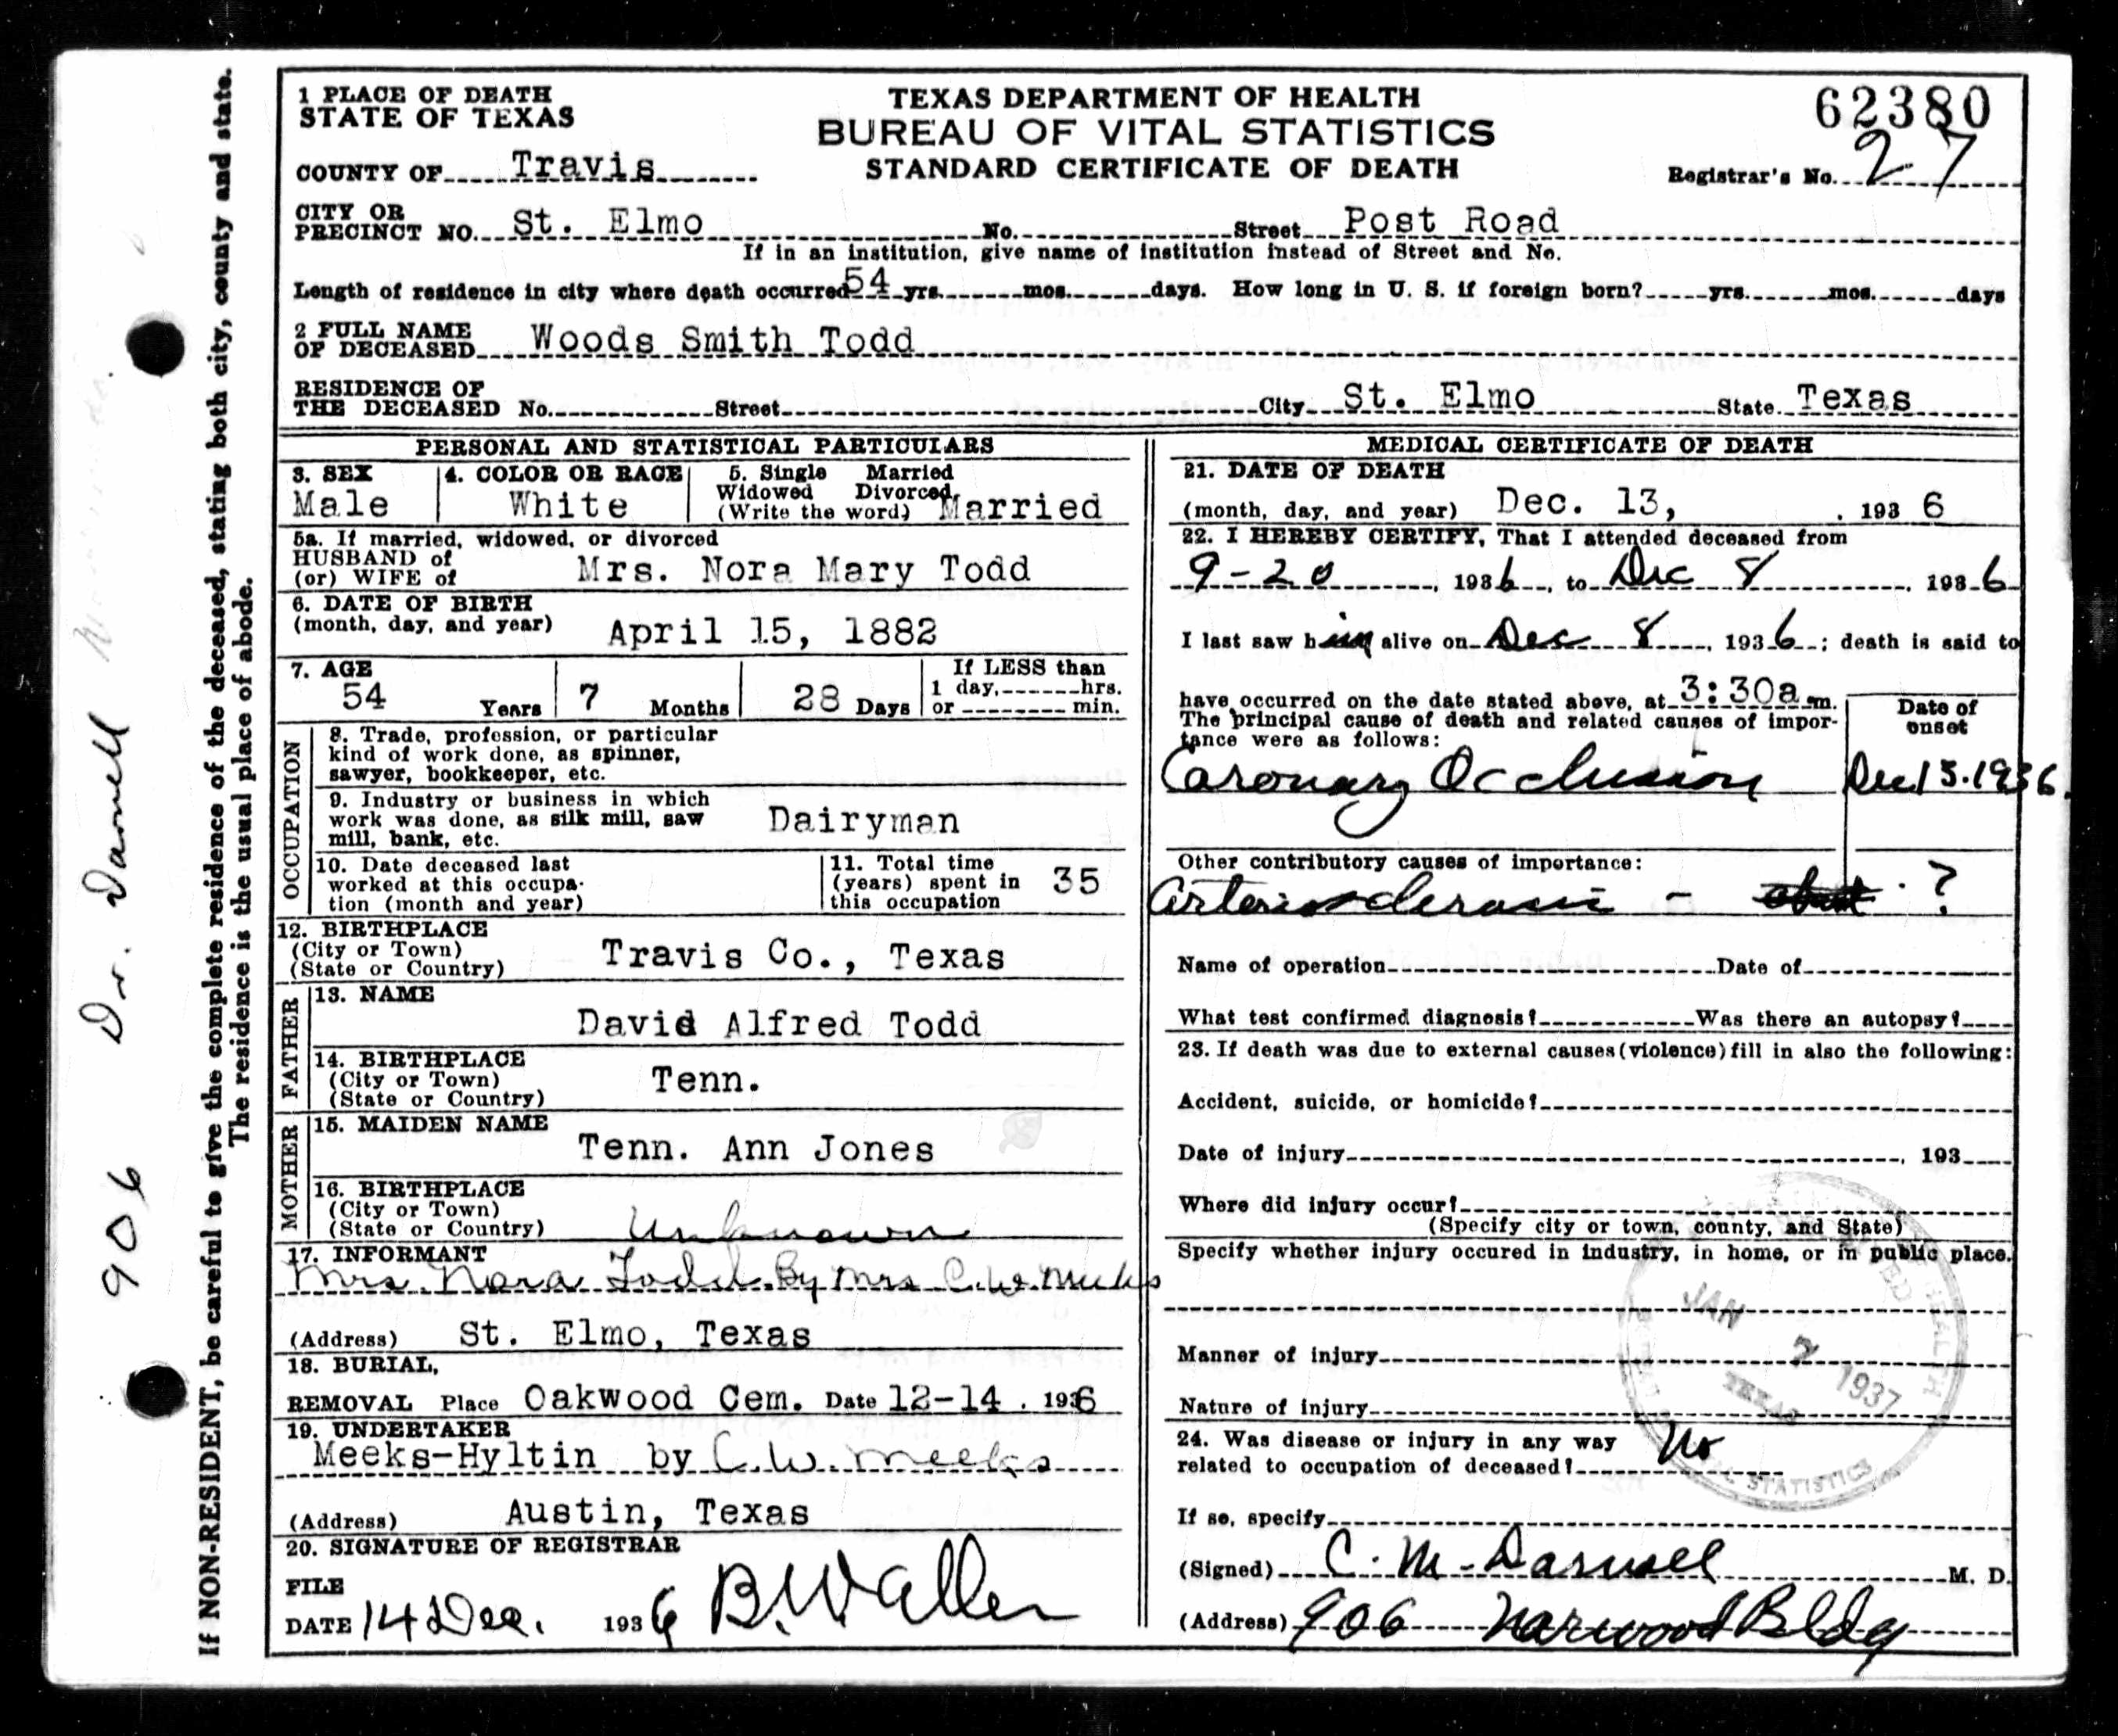 1 PLACE OF DEATH
STATE OF TEXAS
COUNTY OF Travis
TEXAS DEPARTMENT OF HEALTH
BUREAU OF VITAL STATISTICS
STANDARD CERTIFICATE OF DEATH
62380
Registrar's No. 27
CITY OR
PRECINCT NO. St. Elmo No. Street Post Road
If in an institution, give name of institution instead of Street and No.
Length of residence in city where death occurred 54 yrs. mos. days. How long in U. S. if foreign born? yrs. mos. days
2 FULL NAME
OF DECEASED Woods Smith Todd
RESIDENCE OF
THE DECEASED No. Street City St. Elmo State Texas
PERSONAL AND STATISTICAL PARTICULARS
3. SEX
Male
4. COLOR OR RACE
White
5. Single Married
Widowed Divorced
(Write the word) Married
5a. If married, widowed, or divorced
HUSBAND of
(or) WIFE of Mrs. Nora Mary Todd
6. DATE OF BIRTH
(month, day, and year) April 15, 1882
7. AGE
54 Years 7 Months 28 Days
If LESS than
1 day, hrs.
or min.
OCCUPATION
8. Trade, profession, or particular
kind of work done, as spinner,
sawyer, bookkeeper, etc.
9. Industry or business in which
work was done, as silk mill, saw
mill, bank, etc.
Dairyman
10. Date deceased last
worked at this occupa-
tion (month and year)
11. Total time
(years) spent in
this occupation 35
12. BIRTHPLACE
(City or Town)
(State or Country) Travis Co., Texas
FATHER
13. NAME
David Alfred Todd
14. BIRTHPLACE
(City or Town)
(State or Country) Tenn.
MOTHER
15. MAIDEN NAME
Tenn. Ann Jones
16. BIRTHPLACE
(City or Town)
(State or Country) Unknown
17. INFORMANT
Mrs. Nora Todd. By Mrs C. W. Meeks
(Address) St. Elmo, Texas
18. BURIAL,
REMOVAL Place Oakwood Cem. Date 12-14. 1936
19. UNDERTAKER
Meeks-Hyltin by C. W. Meeks
(Address) Austin, Texas
20. SIGNATURE OF REGISTRAR
FILE
DATE 14 Dec. 1936 B. Waller
MEDICAL CERTIFICATE OF DEATH
21. DATE OF DEATH
(month, day, and year) Dec. 13, , 1936
22. I HEREBY CERTIFY, That I attended deceased from
9-20, 1936, to Dec 8, 1936
I last saw him alive on Dec 8, 1936; death is said to
have occurred on the date stated above, at 3:30a m.
The principal cause of death and related causes of impor-
tance were as follows:
Date of
onset
Coronary Occlusion Dec 13. 1936.
Other contributory causes of importance:
Arteriosclerosis - . ?
Name of operation Date of
What test confirmed diagnosis? Was there an autopsy?
23. If death was due to external causes (violence) fill in also the following:
Accident, suicide, or homicide?
Date of injury , 193
Where did injury occur?
(Specify city or town, county, and State)
Specify whether injury occured in industry, in home, or in public place.
Manner of injury
Nature of injury
24. Was disease or injury in any way
related to occupation of deceased? No
If so, specify
(Signed) C. M. Darnell M. D.
(Address) 906 Norwood Bldg
JAN 2 1937
TEXAS
STATISTICS
If NON-RESIDENT, be careful to give the complete residence of the deceased, stating both city, county and state.
The residence is the usual place of abode.
906 Dr. Darnell